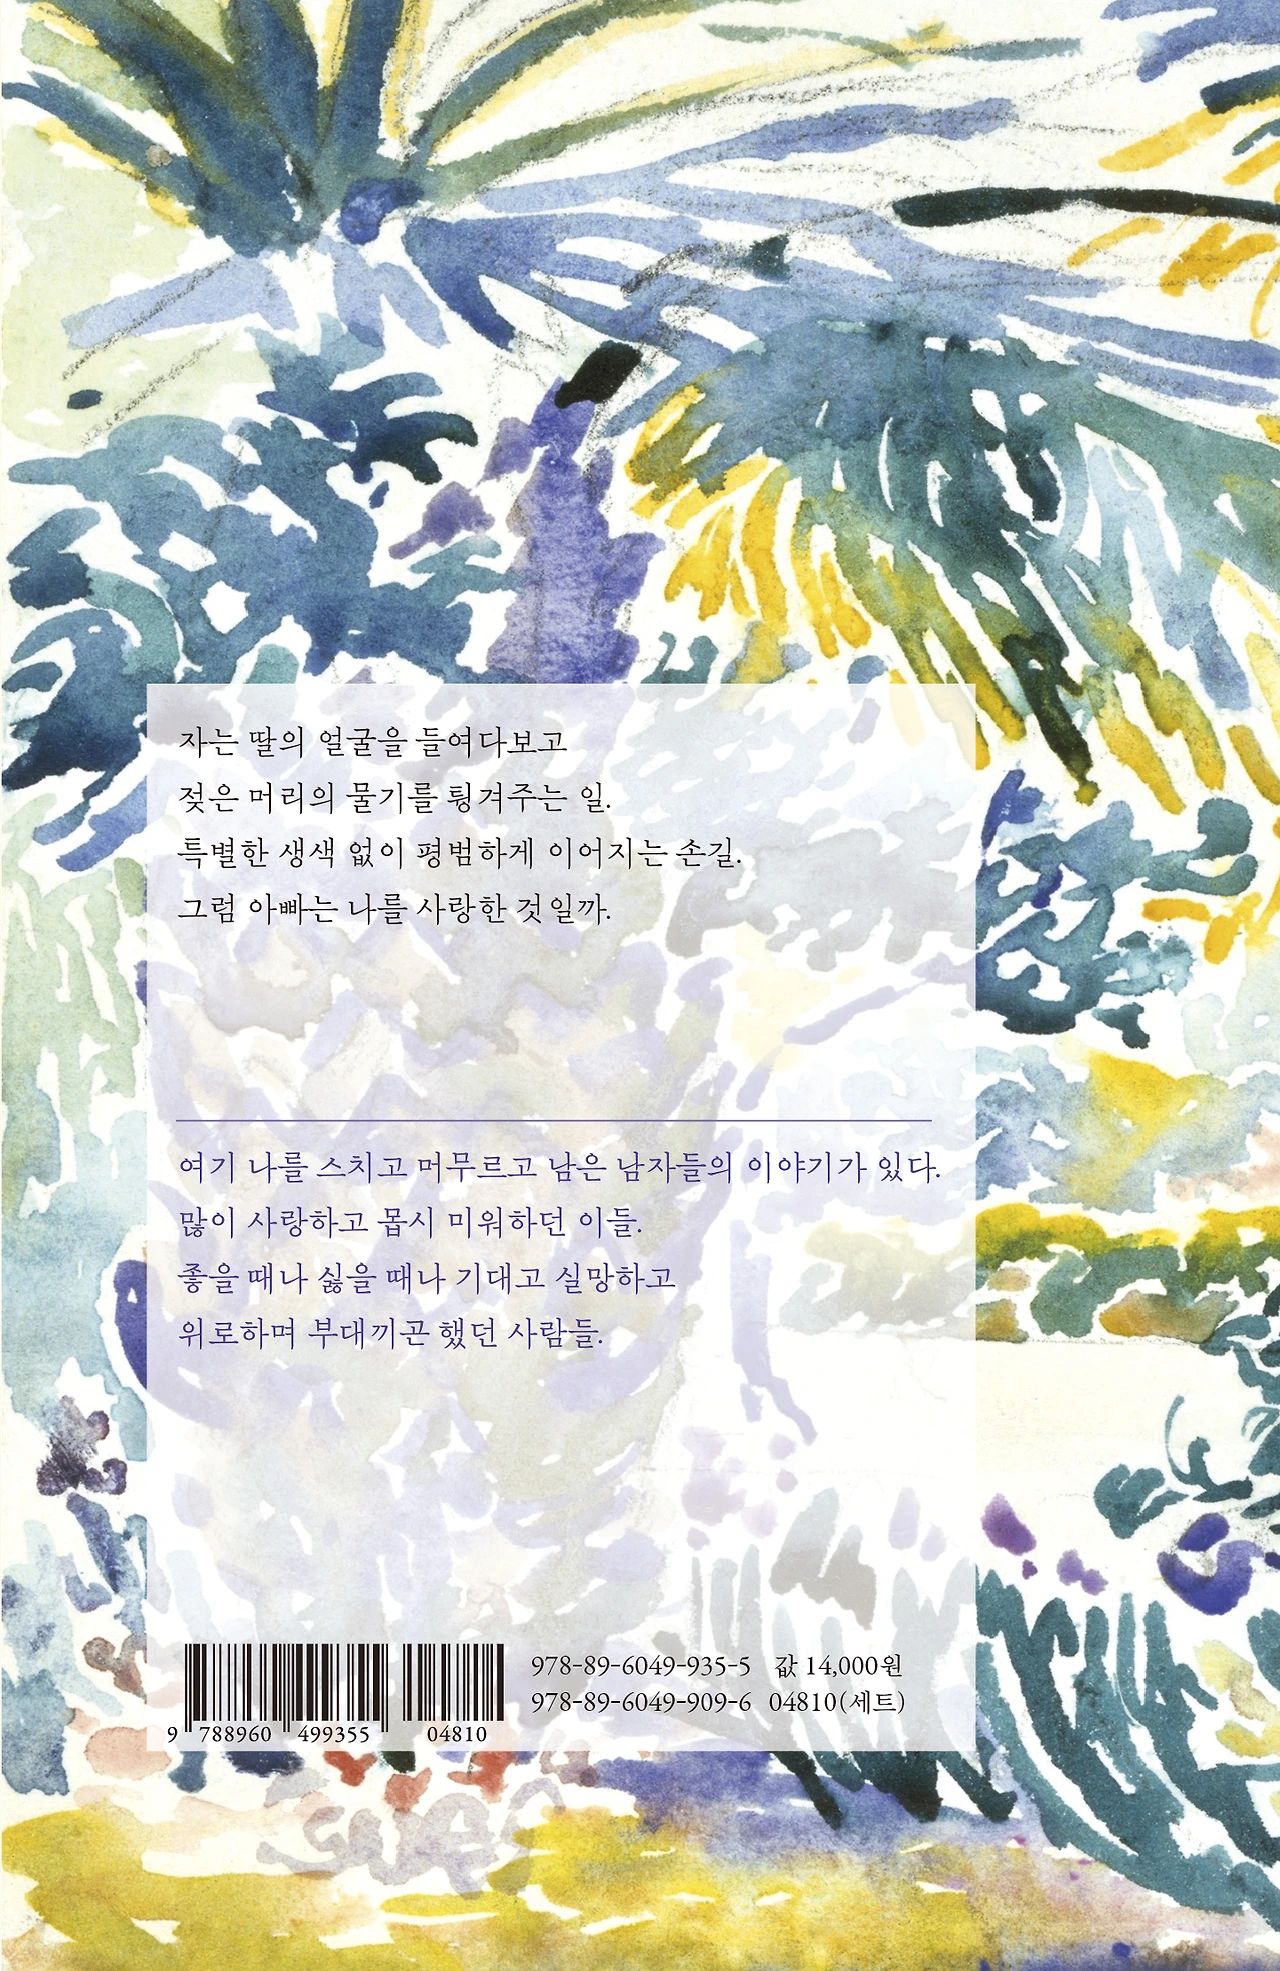 자는 딸의 얼굴을 들여다보고
젖은 머리의 물기를 튕겨주는 일.
특별한 생색 없이 평범하게 이어지는 손길.
그럼 아빠는 나를 사랑한 것일까.
여기 나를 스치고 머무르고 남은 남자들의 이야기가 있다.
많이 사랑하고 몹시 미워하던 이들.
좋을 때나 싫을 때나 기대고 실망하고
위로하며 부대끼곤 했던 사람들.
978-89-6049-935-5 값 14,000원
978-89-6049-909-6 04810(세트)
9 788960 499355 04810